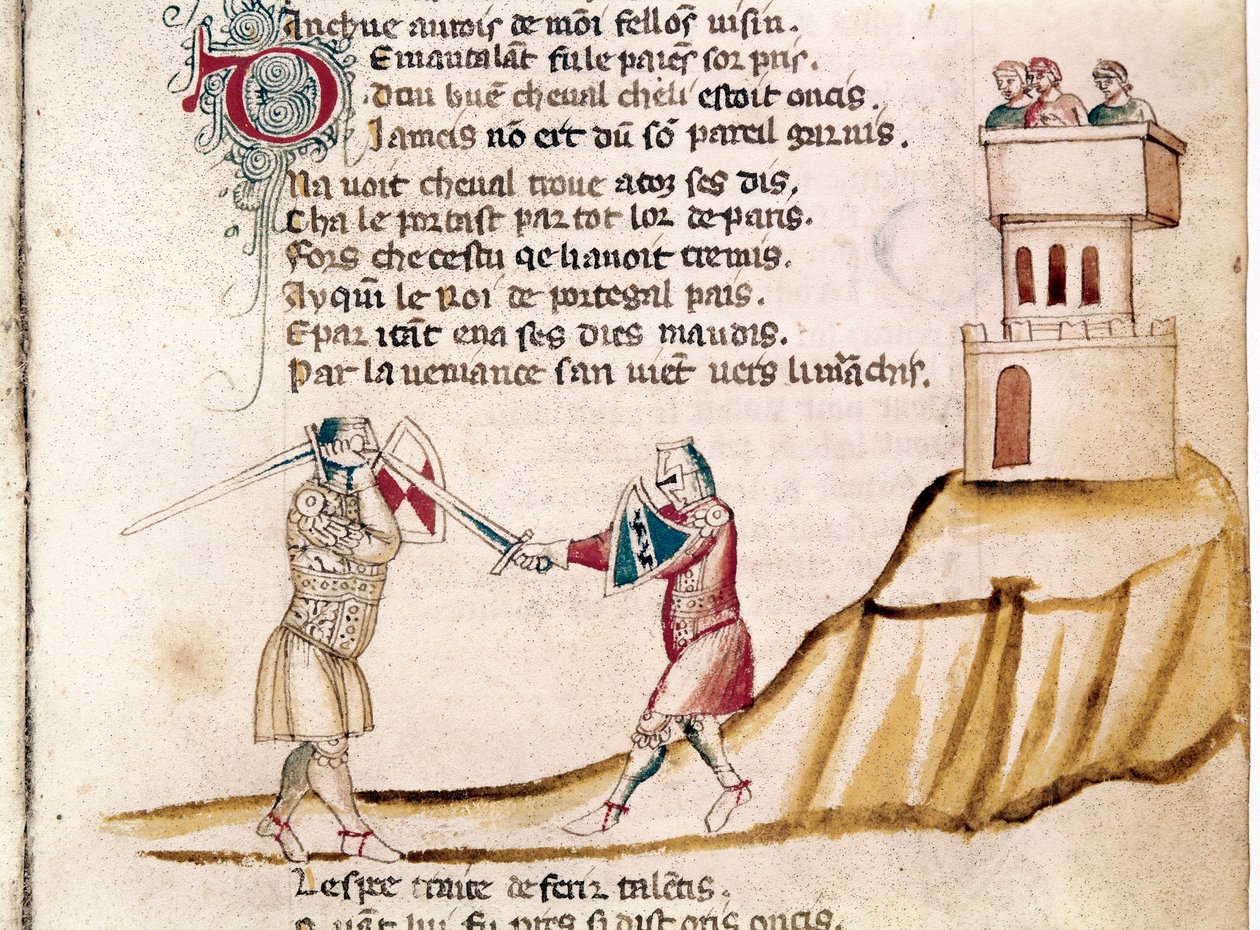 Anchue autois de mōi felloȝ uisin.
E mautalāt fu le paieȝ sor pris.
D dou buē cheual cheli estoit oncis.
Iameis nō ert dū sō pareil garnis.
Na uoit cheual troue a toz ses dis.
Cha le portast par tot lor de paris.
Fors che cestu qe li auoit tremis.
Ayqim le Roi de portegal pais.
E par itāt ena ses dies maudis.
Par la ueniance san uiēt uers li marchis.
Lespee traite de feriz talētis.
Quāt lui fu pres si dist oris oncis.